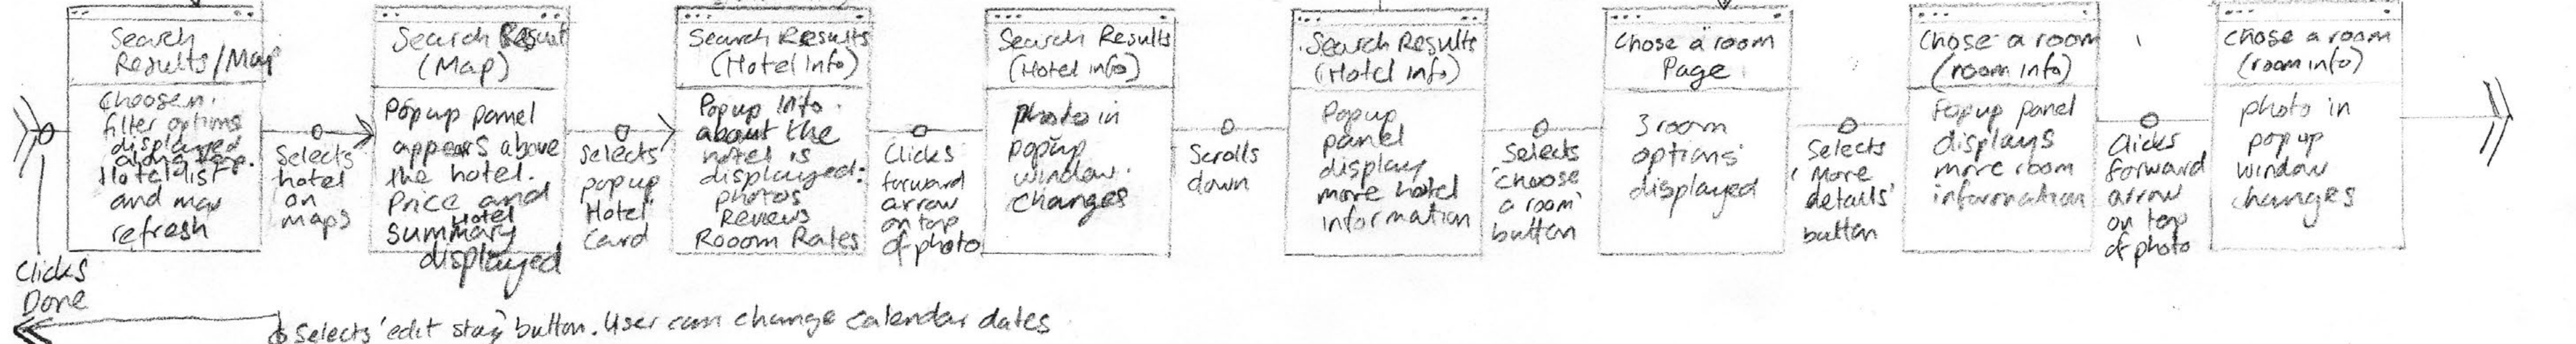 Search
Results/Map
Choosen
filter options
displayed
along top.
Hotel list
and map
refresh
Clicks
Done
Selects
hotel
on
maps
Search Result
(Map)
Popup panel
appears above
the hotel.
Price and
Hotel
summary
displayed
selects
popup
Hotel
Card
Search Results
(Hotel info)
Popup info.
about the
hotel is
displayed:
photos
Reviews
Rooom Rates
Clicks
forward
arrow
on top
of photo
Search Results
(Hotel info)
photo in
popup
window.
changes
Scrolls
down
Search Results
(Hotel info)
Popup
panel
display
more hotel
information
Selects
'choose
a room'
button
Chose a room
Page
3 room
options
displayed
Selects
'More
details'
button
Chose a room
(room info)
Popup panel
displays
more room
information
Clicks
forward
arrow
on top
of photo
Chose a room
(room info)
photo in
popup
window
changes
Selects 'edit stay' button. User can change calendar dates